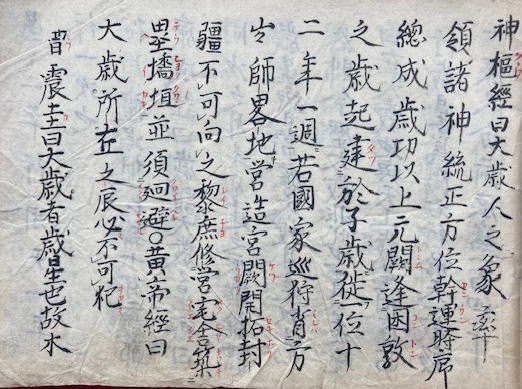 神樞經曰大歳人之象率
領諸神統正方位幹運時席
總成歳功以上元閼逢困敦
之歳起建於子歳徙一位十
二年一週若國家巡狩省方
出師畧地営造宮闕開拓封
疆不可向之黎庶修営宅舎築
壘墻垣並須廻避〇黄帝經曰
大歳所在之辰必不可犯
曰大歳者歳星也故木